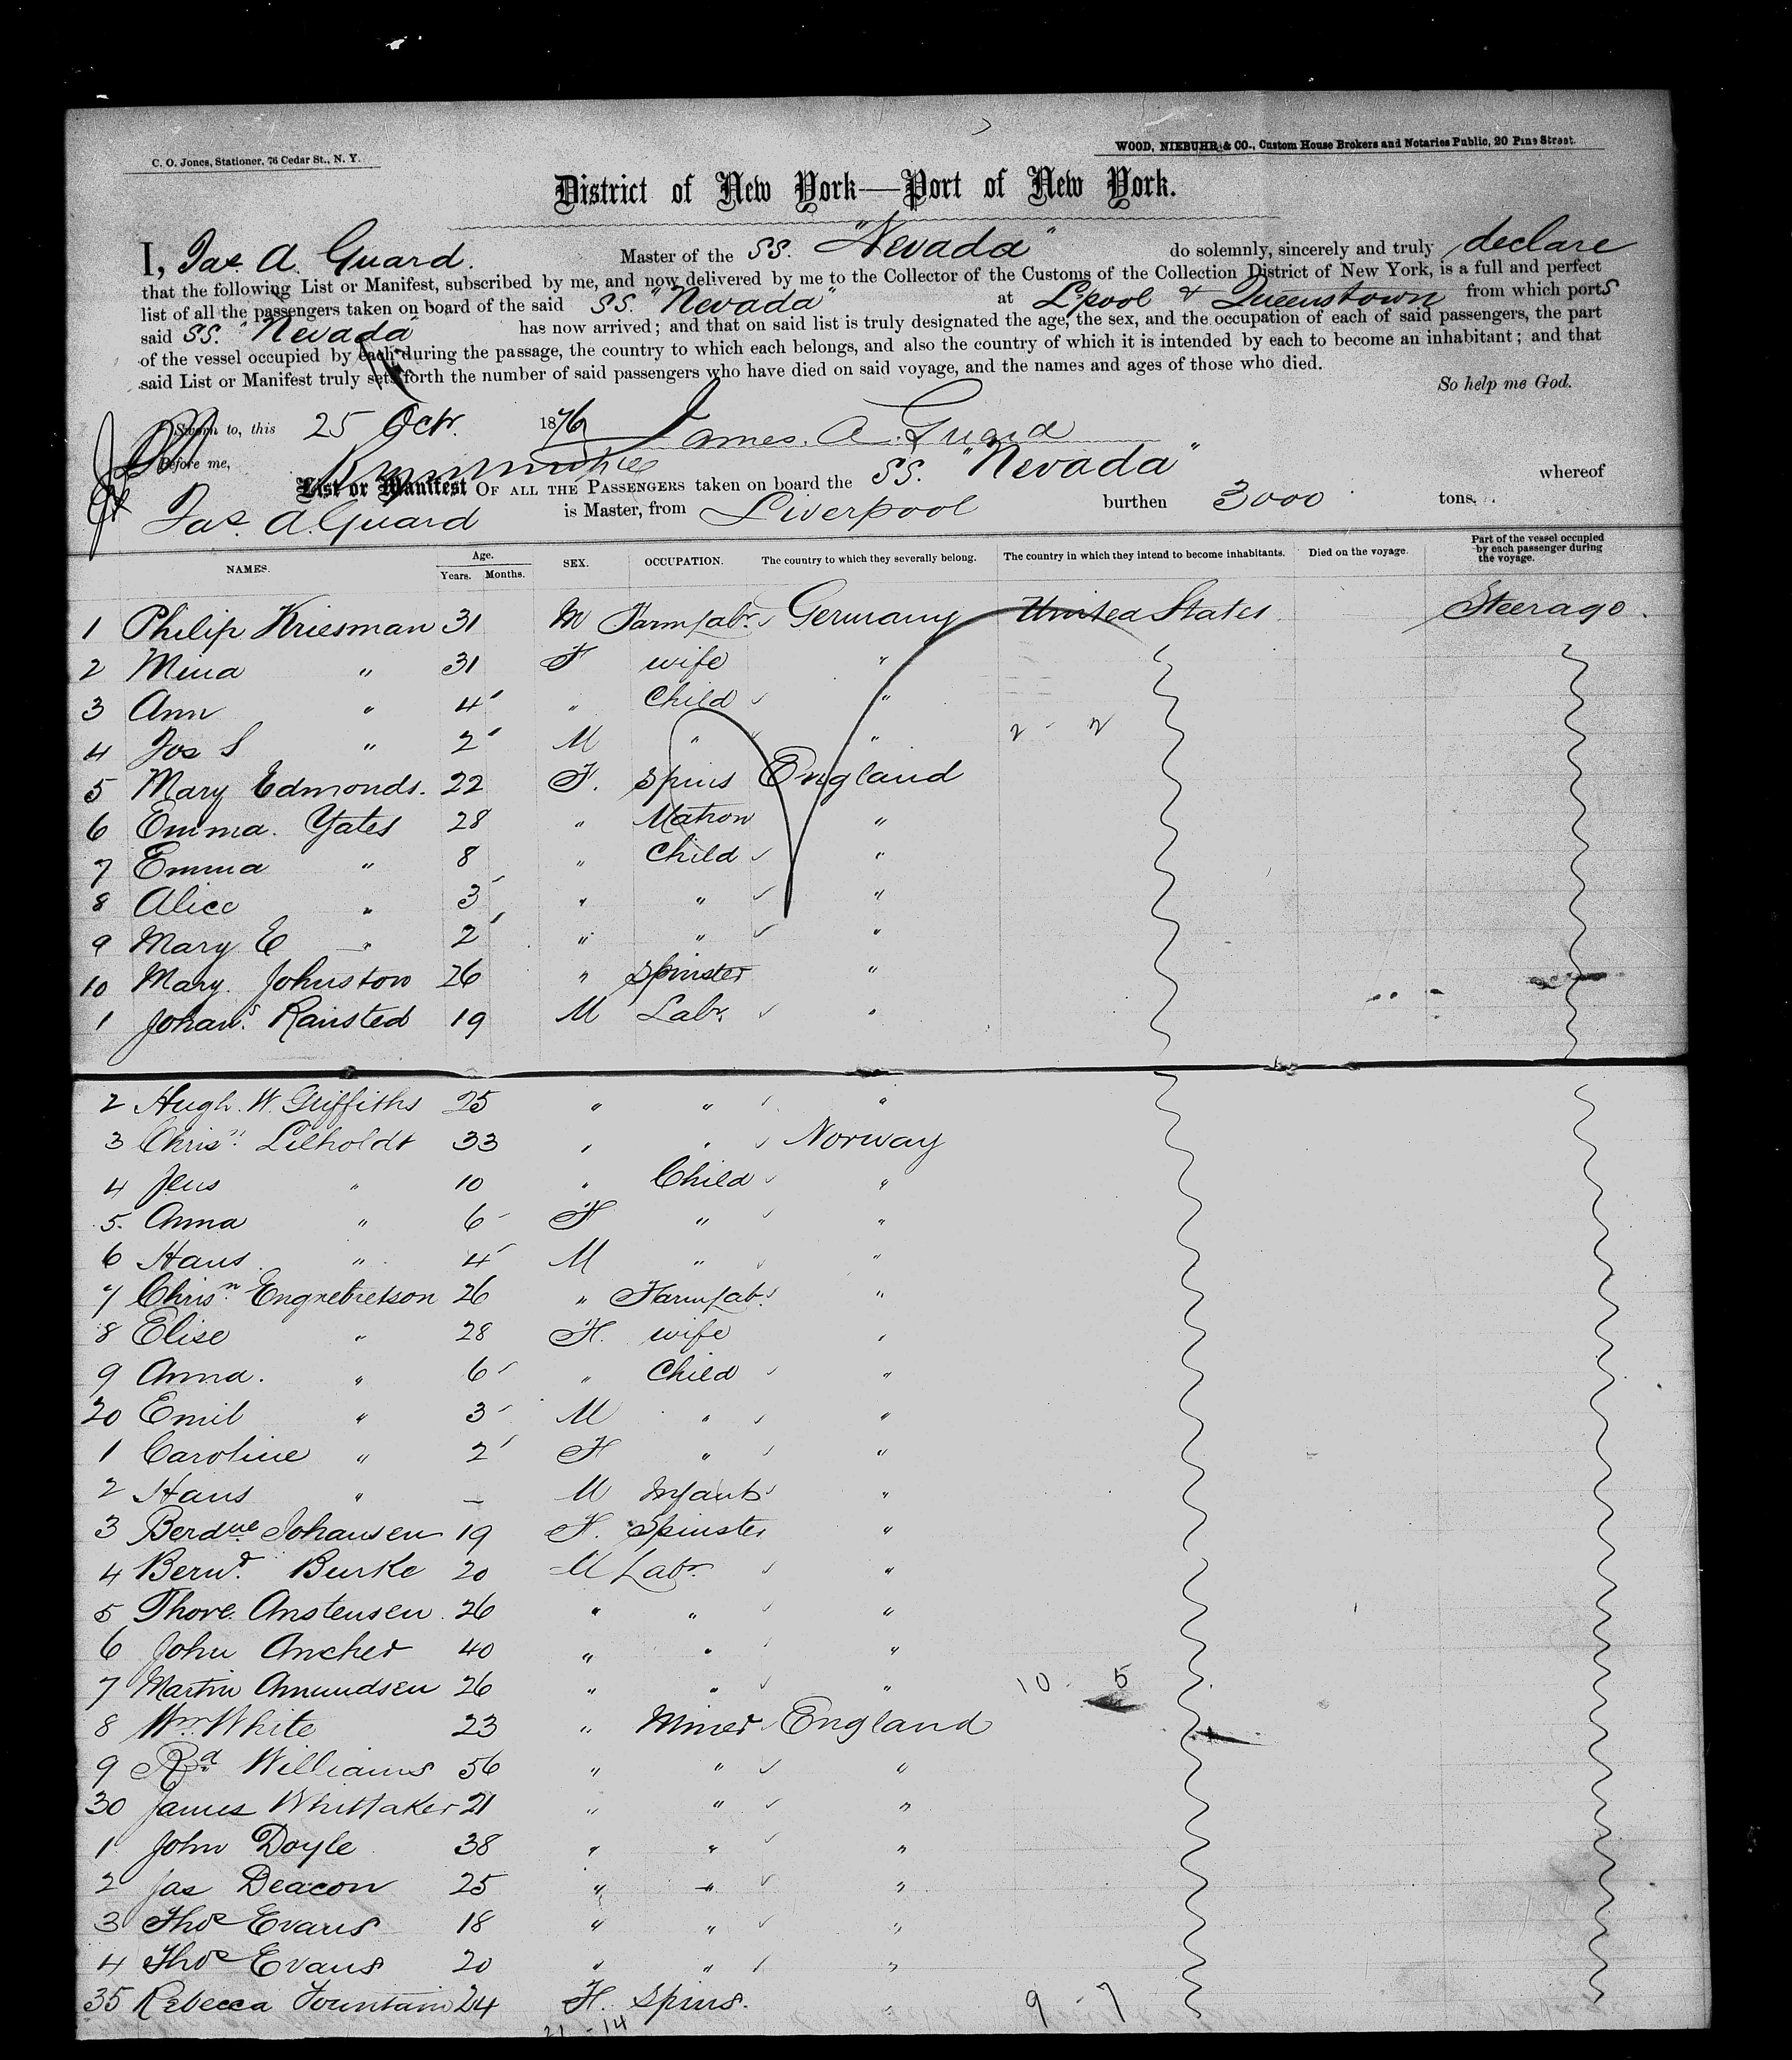 C. O. Jones, Stationer, 76 Cedar St., N. Y.
WOOD, NIEBUHR & CO., Custom House Brokers and Notaries Public, 20 Pine Street.
District of New York—Port of New York.
I, Jas A. Guard. Master of the SS. "Nevada" do solemnly, sincerely and truly declare
that the following List or Manifest, subscribed by me, and now delivered by me to the Collector of the Customs of the Collection District of New York, is a full and perfect
list of all the passengers taken on board of the said SS. "Nevada" at L'pool & Queenstown from which ports
said SS. "Nevada" has now arrived; and that on said list is truly designated the age, the sex, and the occupation of each of said passengers, the part
of the vessel occupied by each during the passage, the country to which each belongs, and also the country of which it is intended by each to become an inhabitant; and that
said List or Manifest truly sets forth the number of said passengers who have died on said voyage, and the names and ages of those who died.
So help me God.
Sworn to, this 25 Oct. 1876 James. A. Guard
Before me,
List or Manifest OF ALL THE PASSENGERS taken on board the SS. "Nevada" whereof
Jas. A. Guard is Master, from Liverpool burthen 3000 tons.
NAMES. Age. Years. Months. SEX. OCCUPATION. The country to which they severally belong. The country in which they intend to become inhabitants. Died on the voyage. Part of the vessel occupied by each passenger during the voyage.
1 Philip Kriesman 31 M Farm Labr. Germany United States Steerage.
2 Mina " 31 F wife "
3 Ann " 4 " Child "
4 Jos S " 2 M " " 2 - 2
5 Mary Edmonds. 22 F. Spins England
6 Emma. Yates 28 " Matron "
7 Emma " 8 " Child "
8 Alice " 3 " " "
9 Mary E " 2 " " "
10 Mary Johnston 26 " Spinster "
1 Johans. Ransted 19 M Labr. "
2 Hugh. W. Griffiths 25 " " "
3 Chrisn. Lilholdt 33 " " Norway
4 Jens " 10 " Child "
5. Anna " 6 F " "
6 Hans " 4 M " "
7 Chrisn. Engrebretson 26 " Farm Labr. "
8 Elise " 28 F. wife "
9 Anna. " 6 " Child "
20 Emil " 3 M " "
1 Caroline " 2 F " "
2 Hans " — M Infant "
3 Berdne Johansen 19 F. Spinster "
4 Bernd. Burke 20 M Labr. "
5 Thore. Anstensen. 26 " " "
6 John Ancher 40 " " "
7 Martin Amundsen 26 " " " 10 - 5
8 Wm. White 23 " Miner England
9 Rd. Williams 56 " " "
30 James Whittaker 21 " " "
1 John Doyle 38 " " "
2 Jas Deacon 25 " " "
3 Thos Evans 18 " " "
4 Thos Evans 20 " " "
35 Rebecca Fountain 24 F. Spins. " 9 - 7
21 - 14